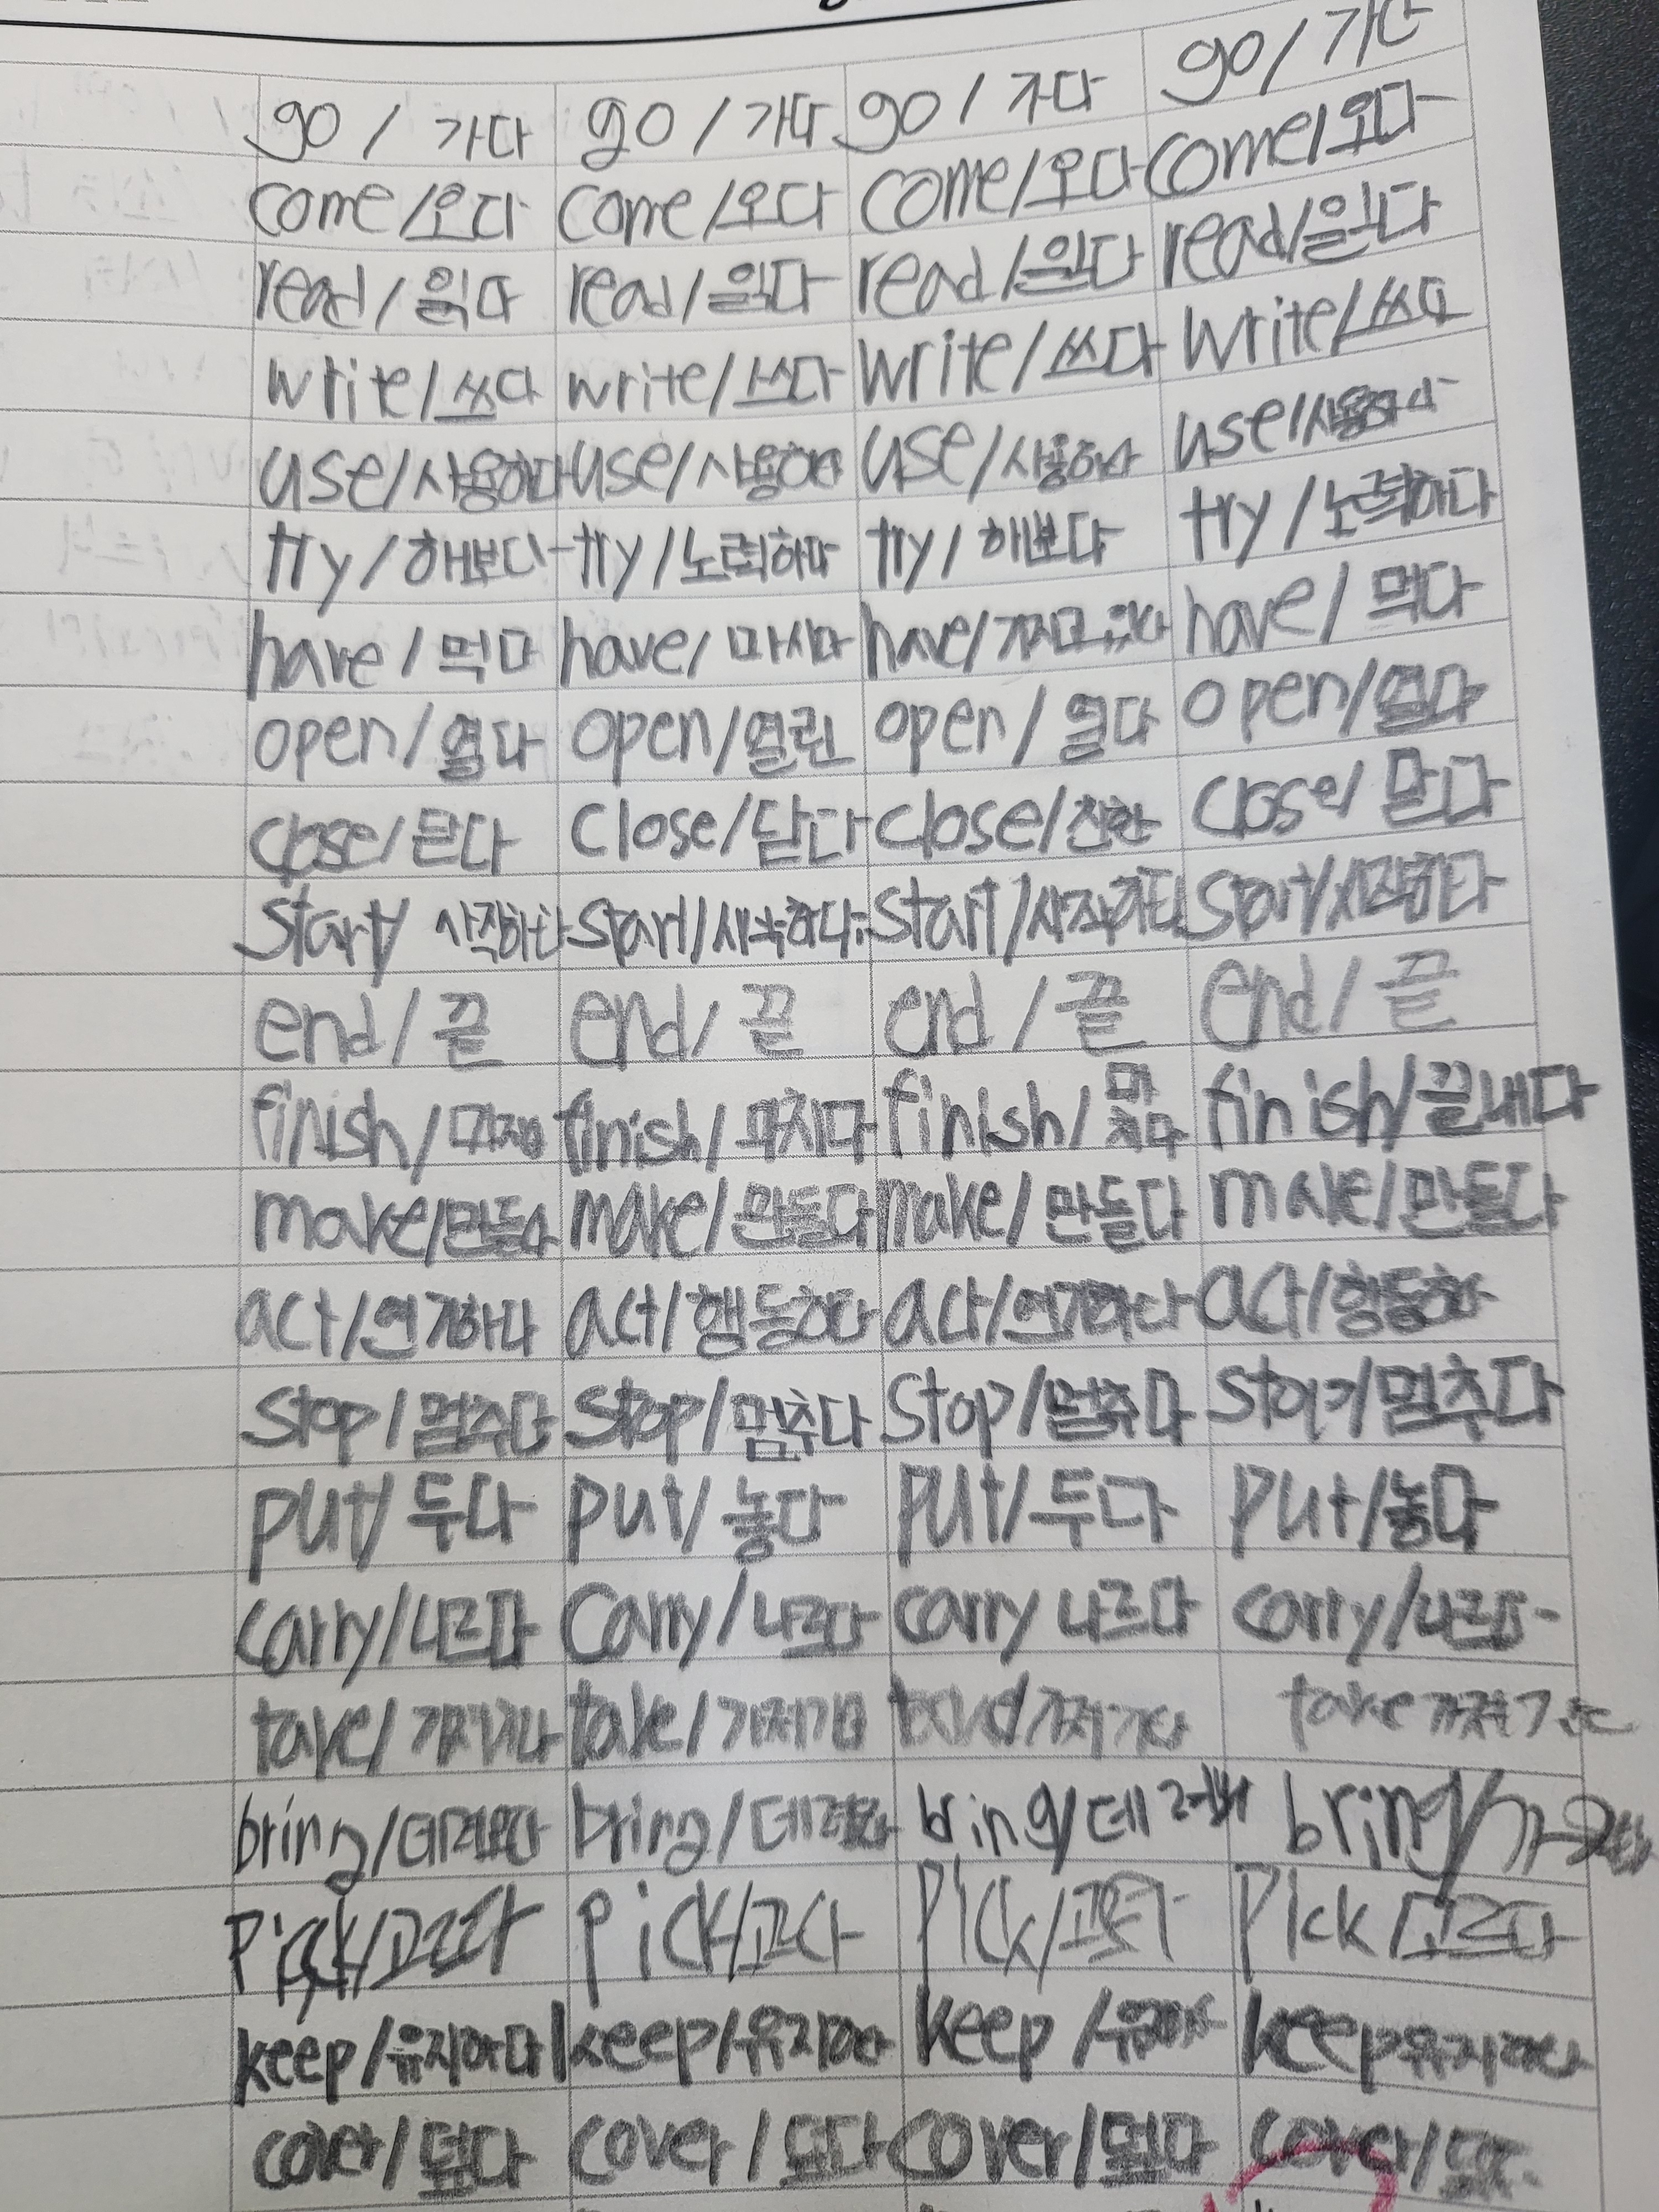 go / 가다 go / 가다 go / 가다 go / 가다
come/오다 come/오다 come/오다 come/오다
read/읽다 read/읽다 read/읽다 read/읽다
write/쓰다 write/쓰다 write/쓰다 write/쓰다
use/사용하다 use/사용하다 use/사용하다 use/사용하다
try/해보다 try/노력하다 try/해보다 try/노력하다
have/먹다 have/마시다 have/가지고 있다 have/먹다
open/열다 open/열린 open/열다 open/열다
close/닫다 close/닫다 close/친한 close/닫다
start/ 시작하다 start/시작하다 start/시작하다 start/시작하다
end/끝 end/끝 end/끝 end/끝
finish/ finish/마치다 finish/마치다 finish/끝내다
make/만들다 make/만들다 make/만들다 make/만들다
act/연기하다 act/행동하다 act/연기하다 act/행동하
stop/멈추다 stop/멈추다 stop/멈추다 stop/멈추다
put/두다 put/놓다 put/두다 put/놓다
carry/나르다 carry/나르다 carry 나르다 carry/나르다
take/ take/ take
bring/데려오다 bring/데려오다 bring/데려 bring/
pick/고르다 pick/ pick/ pick/고르다
keep/유지하다 keep/유지하다 keep/유지하다 keep 유지하다
cover/덮다 cover/덮다 cover/덮다 cover/덮다